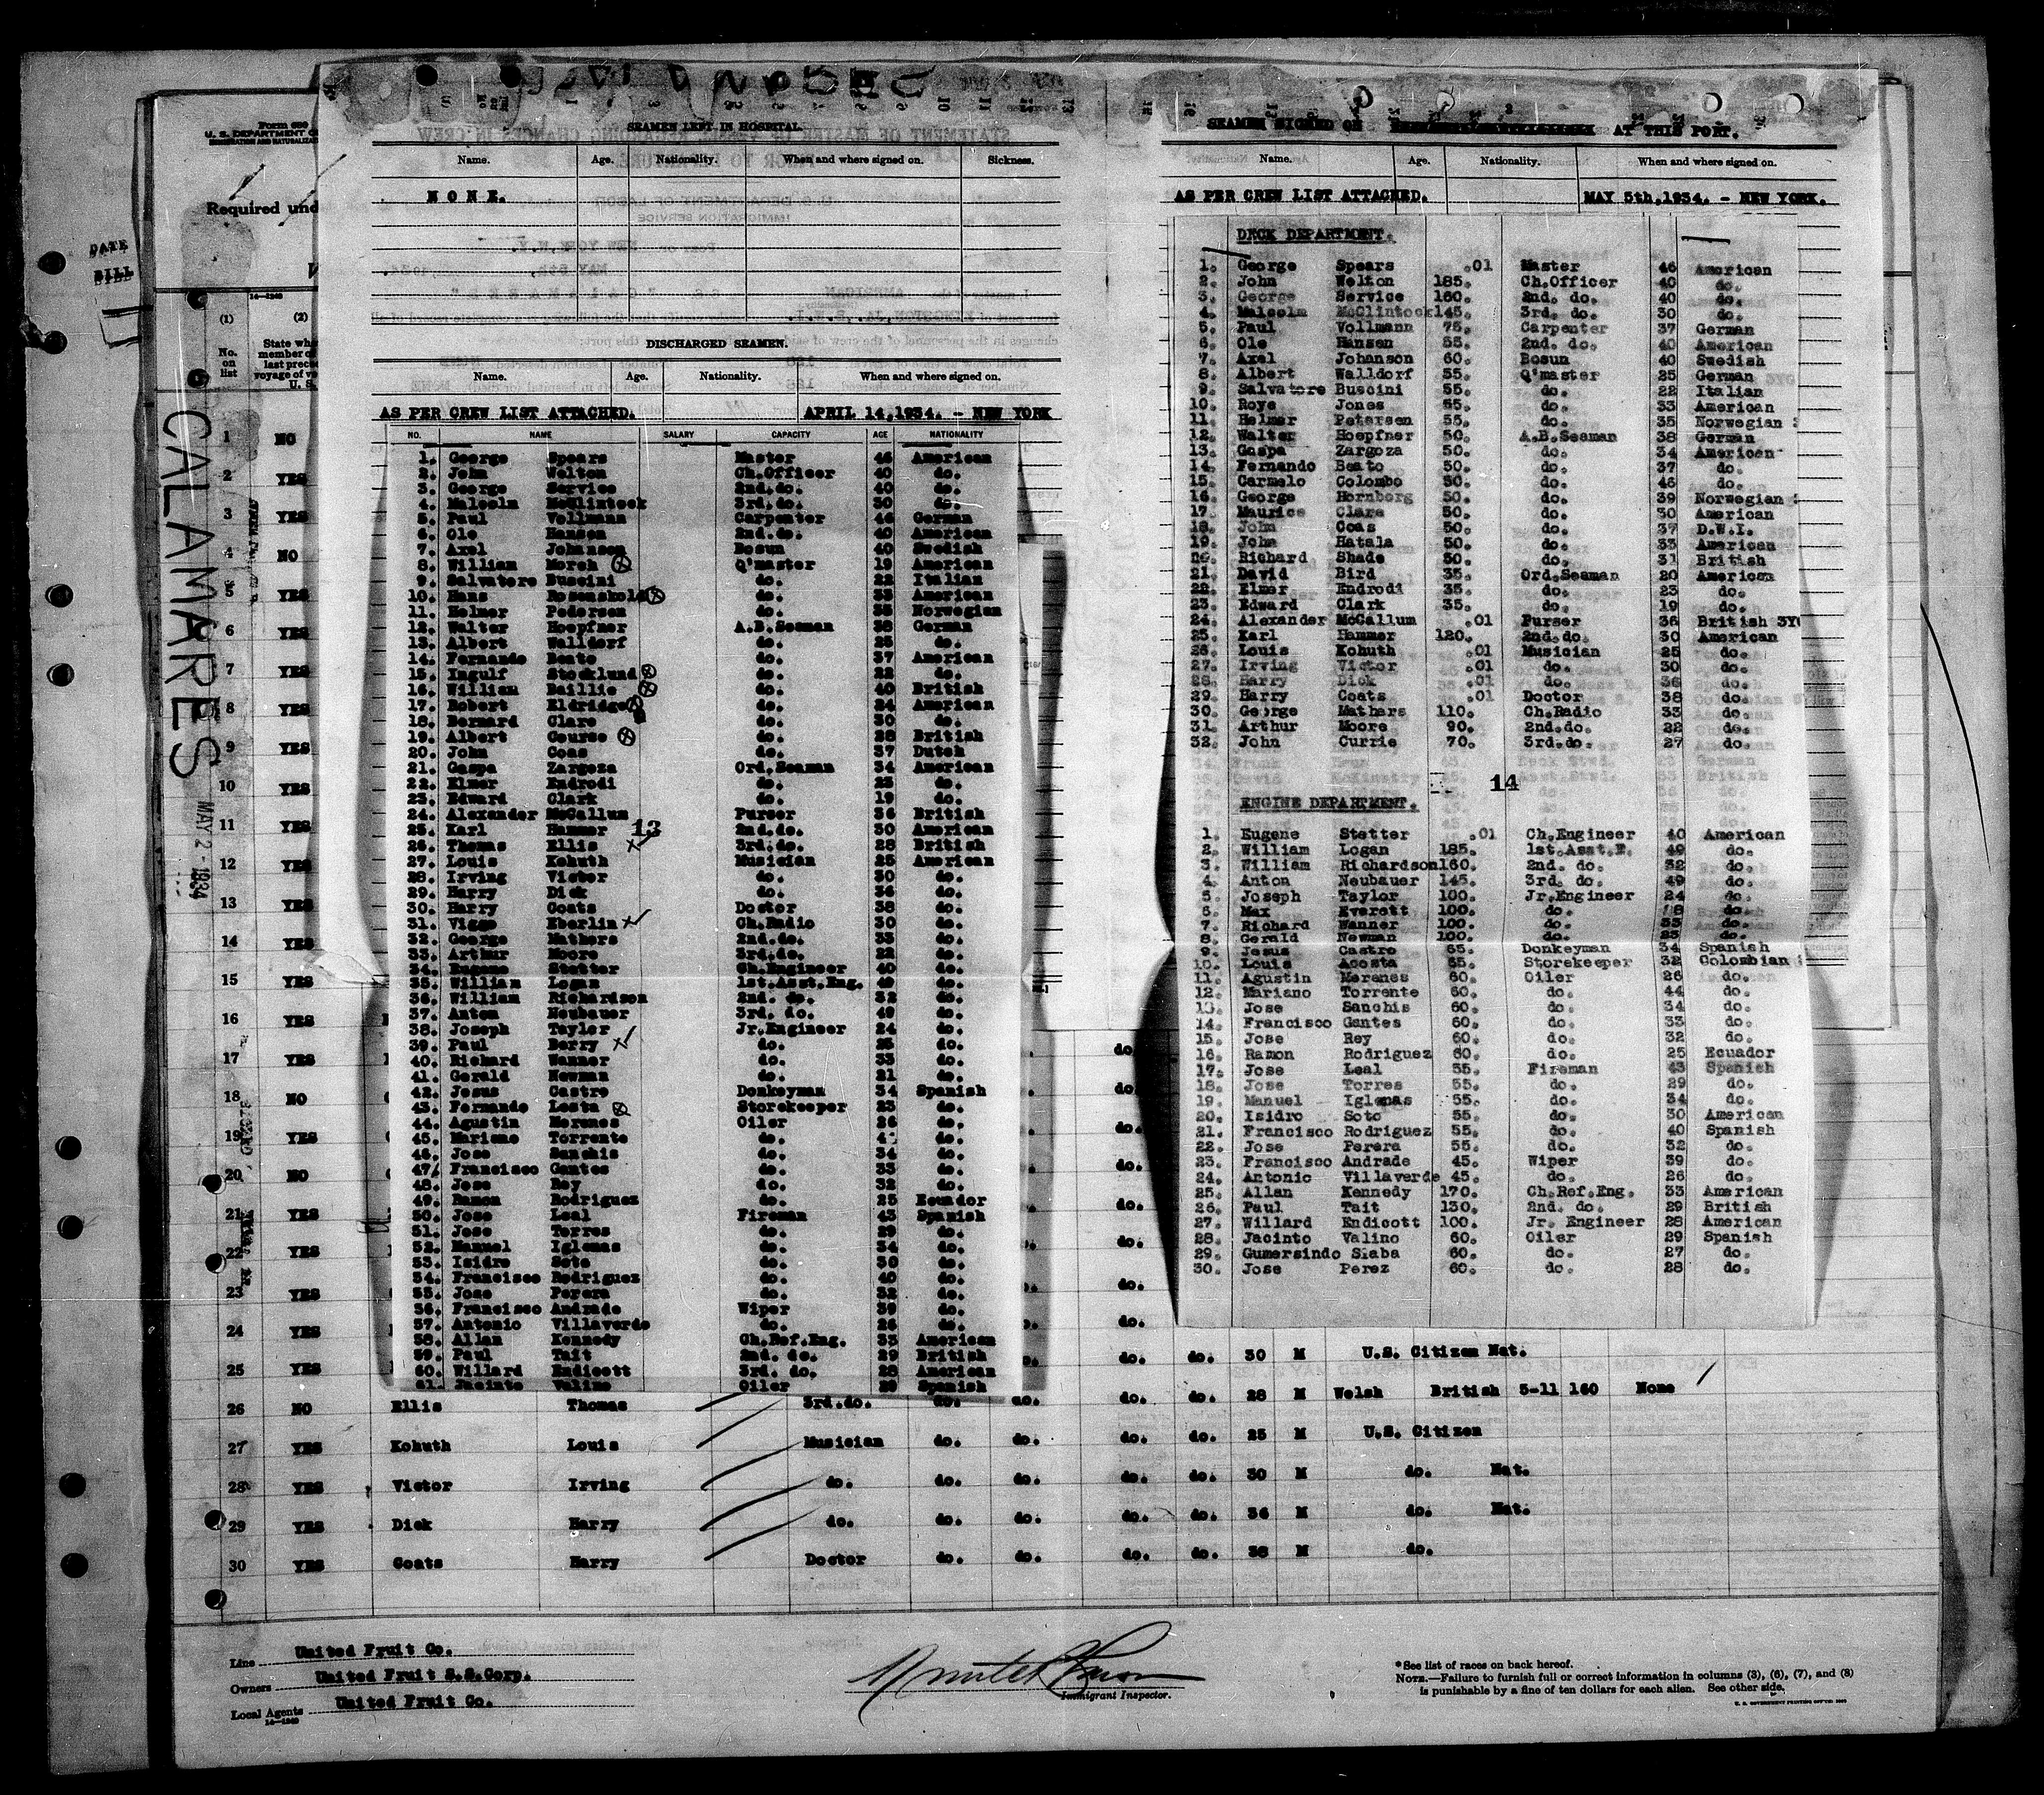 Form 680
U. S. DEPARTMENT O
Required und
DATE
BILL
CALAMARES
MAY 2 - 1934
(1) (2)
No. on list
State wh
member of
last prece
voyage of ve
U. S.
1 NO
2 YES
3 YES
4 NO
5 YES
6 YES
7 YES
8 YES
9 YES
10 YES
11 YES
12 YES
13 YES
14 YES
15 YES
16 YES
17 YES
18 NO
19 YES
20 NO
21 YES
22 YES
23 YES
24 YES
25 YES
SEAMEN LEFT IN HOSPITAL.
Name. Age. Nationality. When and where signed on. Sickness.
NONE.
DISCHARGED SEAMEN.
Name. Age. Nationality. When and where signed on.
AS PER CREW LIST ATTACHED. APRIL 14,1934. - NEW YORK
NO. NAME SALARY CAPACITY AGE NATIONALITY
1. George Spears Master 46 American
2. John Welton Ch.Officer 40 do.
3. George Service 2nd.do. 40 do.
4. Malcolm McClintock 3rd.do. 30 do.
5. Paul Vollmann Carpenter 46 German
6. Ole Hansen 2nd.do. 40 American
7. Axel Johanson Bosun 40 Swedish
8. William Morch Q'master 19 American
9. Salvatore Buscini do. 22 Italian
10. Hans Rosenskold do. 33 American
11. Helmer Pedersen do. 35 Norwegian
12. Walter Hoepfner A.B.Seaman 38 German
13. Albert Walldorf do. 25 do.
14. Fernando Beato do. 37 American
15. Ingulf Stocklund do. 22 do.
16. William Baillie do. 40 British
17. Robert Eldridge do. 24 American
18. Bernard Clare do. 30 do.
19. Albert Course do. 28 British
20. John Coas do. 37 Dutch
21. Gaspa Zargoza Ord.Seaman 34 American
22. Elmer Endrodi do. 23 do.
23. Edward Clark do. 19 do.
24. Alexander McCallum Purser 36 British
25. Karl Hammer 13 2nd.do. 30 American
26. Thomas Ellis 3rd.do. 28 British
27. Louis Kohuth Musician 25 American
28. Irving Victor do. 30 do.
29. Harry Dick do. 36 do.
30. Harry Coats Doctor 38 do.
31. Viggo Eberlin Ch.Radio 30 do.
32. George Mathers 2nd.do. 33 do.
33. Arthur Moore 3rd.do. 22 do.
34. Eugene Stetter Ch.Engineer 40 do.
35. William Logan 1st.Asst.Eng. 49 do.
36. William Richardson 2nd. do. 32 do.
37. Anton Neubauer 3rd. do. 49 do.
38. Joseph Taylor Jr.Engineer 24 do.
39. Paul Berry do. 25 do.
40. Richard Wanner do. 33 do.
41. Gerald Newman do. 21 do.
42. Jesus Castro Donkeyman 34 Spanish
43. Fernando Losta Storekeeper 23 do.
44. Agustin Merenes Oiler 26 do.
45. Mariano Torrente do. do.
46. Jose Sanchis do. 34 do.
47. Francisco Gantes do. 33 do.
48. Jose Rey do. 32 do.
49. Ramon Rodriguez do. 25 Ecuador
50. Jose Leal Fireman 43 Spanish
51. Jose Torres do. 29 do.
52. Manuel Iglenas do. 34 do.
53. Isidro Soto do. 30 do.
54. Francisco Rodriguez do. 40 do.
55. Jose Perera do. 32 do.
56. Francisco Andrade Wiper 39 do.
57. Antonio Villaverde do. 26 do.
58. Allan Kennedy Ch.Ref.Eng. 33 American
59. Paul Tait 2nd. do. 29 British
60. Willard Endicott 3rd. do. 28 American
61. Jacinto Valino Oiler 29 Spanish
SEAMEN SIGNED ON AT THIS PORT.
Name. Age. Nationality. When and where signed on.
AS PER CREW LIST ATTACHED. MAY 5th,1934. - NEW YORK.
DECK DEPARTMENT.
1. George Spears .01 Master 46 American
2. John Welton 185. Ch.Officer 40 do.
3. George Service 160. 2nd. do. 40 do.
4. Malcolm McClintock 145. 3rd. do. 30 do.
5. Paul Vollmann 75. Carpenter 37 German
6. Ole Hansen 55. 2nd. do. 40 American
7. Axel Johanson 60. Bosun 40 Swedish
8. Albert Walldorf 55. Q'master 25 German
9. Salvatore Buscini 55. do. 22 Italian
10. Roye Jones 55. do. 33 American
11. Helmer Petersen 55. do. 35 Norwegian
12. Walter Hoepfner 50. A.B.Seaman 38 German
13. Gaspa Zargoza 50. do. 34 American
14. Fernando Beato 50. do. 37 do.
15. Carmelo Colombo 50. do. 46 do.
16. George Hornborg 50. do. 39 Norwegian
17. Maurice Clare 50. do. 30 American
18. John Coas 50. do. 37 D.W.I.
19. John Hatala 50. do. 33 American
20. Richard Shade 50. do. 31 British
21. David Bird 35. Ord.Seaman 20 American
22. Elmer Endrodi 35. do. 23 do.
23. Edward Clark 35. do. 19 do.
24. Alexander McCallum .01 Purser 36 British
25. Karl Hammer 120. 2nd.do. 30 American
26. Louis Kohuth .01 Musician 25 do.
27. Irving Victor .01 do. 30 do.
28. Harry Dick .01 do. 36 do.
29. Harry Coats .01 Doctor 38 do.
30. George Mathers 110. Ch.Radio 33 do.
31. Arthur Moore 90. 2nd.do. 22 do.
32. John Currie 70. 3rd.do. 27 do.
14
ENGINE DEPARTMENT.
1. Eugene Stetter .01 Ch.Engineer 40 American
2. William Logan 185. 1st.Asst.E. 49 do.
3. William Richardson 160. 2nd. do. 32 do.
4. Anton Neubauer 145. 3rd. do. 49 do.
5. Joseph Taylor 100. Jr.Engineer 24 do.
6. Max Everett 100. do. do.
7. Richard Wanner 100. do. 33 do.
8. Gerald Newman 100. do. do.
9. Jesus Castro 65. Donkeyman 34 Spanish
10. Louis Acosta 65. Storekeeper 32 Colombian
11. Agustin Merenes 60. Oiler 26 do.
12. Mariano Torrente 60. do. 44 do.
13. Jose Sanchis 60. do. 34 do.
14. Francisco Gantes 60. do. 33 do.
15. Jose Rey 60. do. 32 do.
16. Ramon Rodriguez 60. do. 25 Ecuador
17. Jose Leal 55. Fireman 43 Spanish
18. Jose Torres 55. do. 29 do.
19. Manuel Iglenas 55. do. 34 do.
20. Isidro Soto 55. do. 30 American
21. Francisco Rodriguez 55. do. 40 Spanish
22. Jose Perera 55. do. 32 do.
23. Francisco Andrade 45. Wiper 39 do.
24. Antonic Villaverde 45. do. 26 do.
25. Allan Kennedy 170. Ch.Ref.Eng. 33 American
26. Paul Tait 130. 2nd. do. 29 British
27. Willard Endicott 100. Jr. Engineer 28 American
28. Jacinto Valino 60. Oiler 29 Spanish
29. Gumersindo Siaba 60. do. 27 do.
30. Jose Perez 60. do. 28 do.
do. do. 30 M U.S. Citizen Nat.
26 NO Ellis Thomas 3rd.do. do. do. do. do. 28 M Welsh British 5-11 160 None
27 YES Kohuth Louis Musician do. do. do. do. 25 M U.S. Citizen
28 YES Victor Irving do. do. do. do. do. 30 M do. Nat.
29 YES Dick Harry do. do. do. do. do. 36 M do. Nat.
30 YES Coats Harry Doctor do. do. do. do. 38 M do.
Line United Fruit Co.
Owners United Fruit S.S.Corp.
Local Agents United Fruit Co.
14-1240
Immigrant Inspector.
*See list of races on back hereof.
NOTE.—Failure to furnish full or correct information in columns (3), (6), (7), and (8)
is punishable by a fine of ten dollars for each alien. See other side.